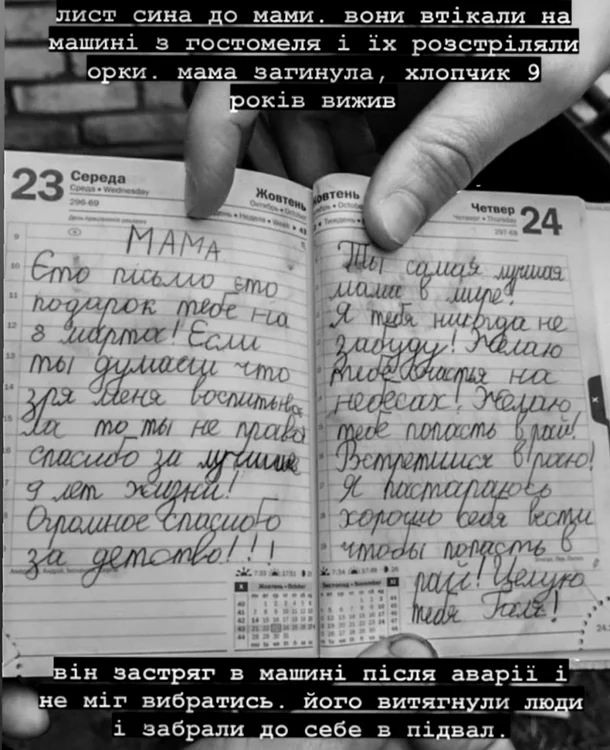 лист сина до мами. вони втікали на
машині з гостомеля і їх розстріляли
орки. мама загинула, хлопчик 9
років вижив
23 Середа
Среда • Wednesday
296-69
Жовтень
Октябрь • October
МАМА
Ето пісьмо ето
подарок тебе на
8 марта! Если
ты думаеш что
зря меня воспитыва
ла то ты не права
спасибо за лучшие
9 лет жизни!
Огромное спасибо
за детство!!!
Жовтень • October
Жовтень
Четвер 24
Четверг • Thursday
297-68
Ты самая лучшая
мама в мире!
Я тебя никогда не
забуду! Желаю
тебе счастья на
небесах! Желаю
тебе попасть в рай!
Встретимся в раю!
Я пастараюсь
хорошо себя вести
чтобы попасть в
рай! Целую
тебя Галя!
він застряг в машині після аварії і
не міг вибратись. його витягнули люди
і забрали до себе в підвал.